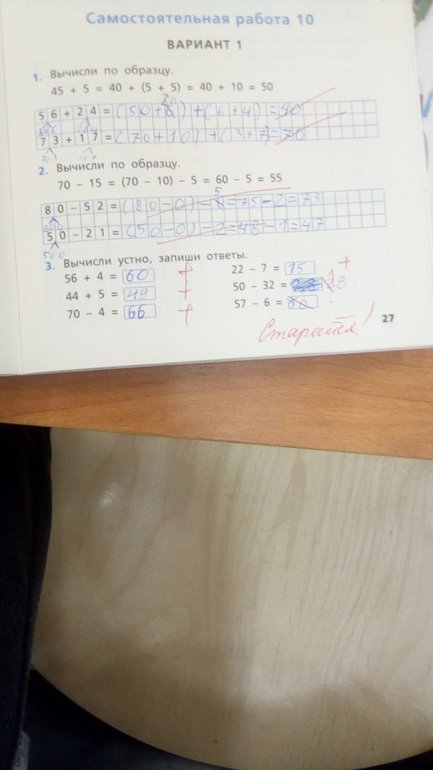 Самостоятельная работа 10
ВАРИАНТ 1
1. Вычисли по образцу.
45 + 5 = 40 + (5 + 5) = 40 + 10 = 50
56+24=(50+20)+(6+4)=40
73+17=(70+10)+(3+7)=70
2. Вычисли по образцу.
70 – 15 = (70 – 10) – 5 = 60 – 5 = 55
80-52=(80-0)-5=75-2=73
50-21=(50-0)-2=48-1=47
3. Вычисли устно, запиши ответы.
56 + 4 = 60 +
22 – 7 = 15 +
44 + 5 = 49 +
50 – 32 = 18.
70 – 4 = 66 +
57 – 6 = 50
Старайся!
27